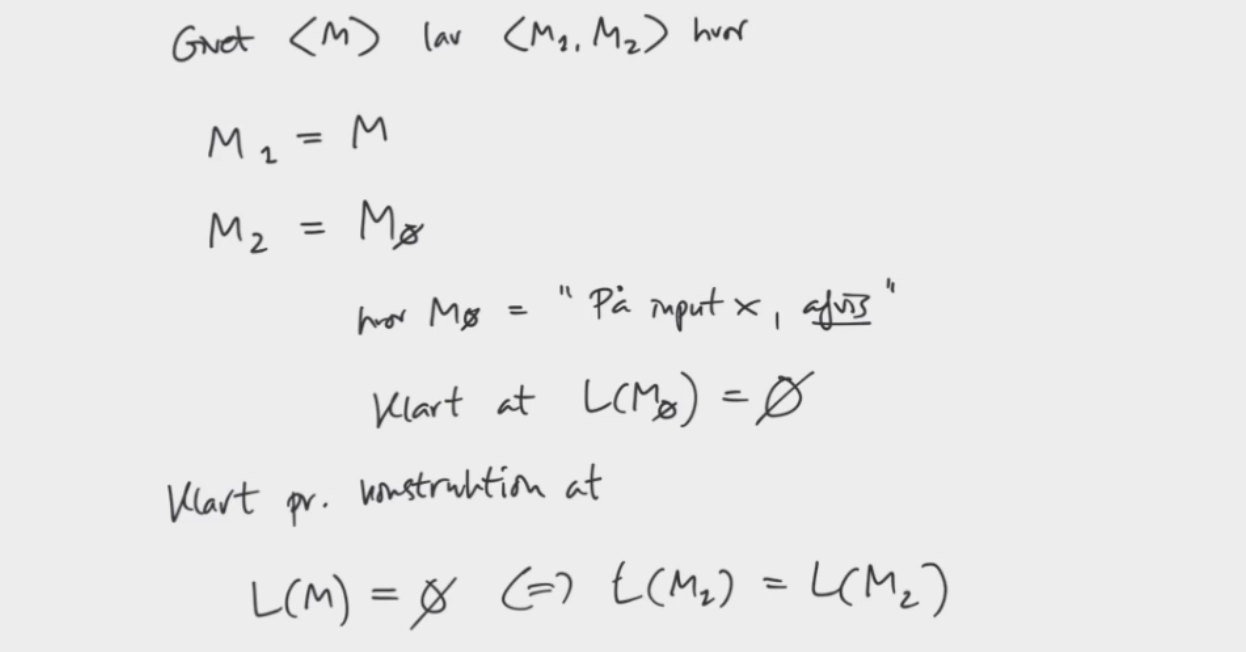 Givet <M> lav <M₁, M₂> hvor
M₁ = M
M₂ = M∅
hvor M∅ = "På input x, afvis"
Klart at L(M∅) = ∅
Klart pr. konstruktion at
L(M) = ∅ <=> L(M₁) = L(M₂)